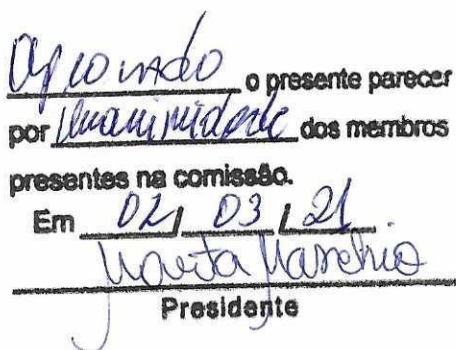 Aprovado o presente parecer
por Unanimidade dos membros
presentes na comissão.
Em 02 / 03 / 21
Presidente